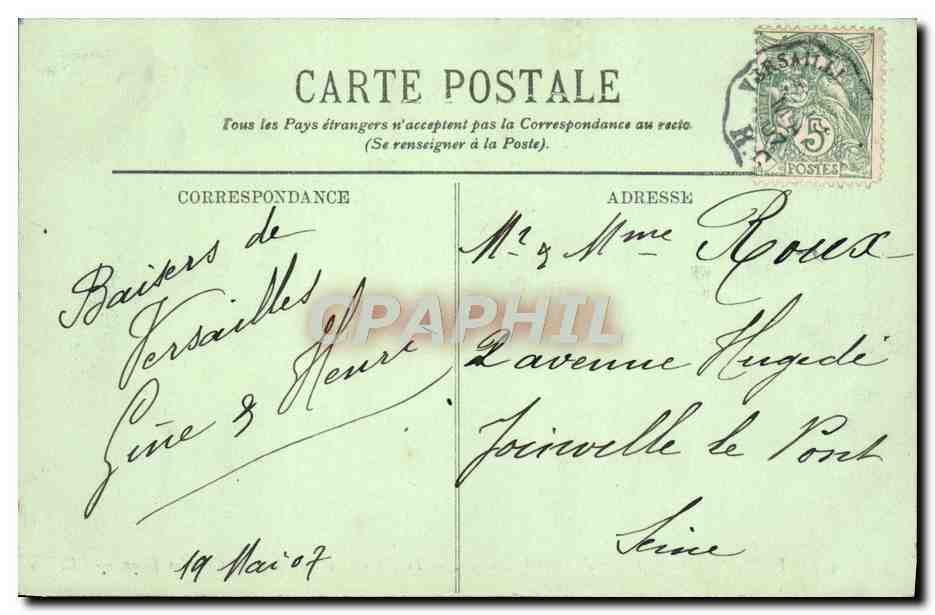 CARTE POSTALE
Tous les Pays étrangers n'acceptent pas la Correspondance au recto.
(Se renseigner à la Poste).
CORRESPONDANCE
Baisers de
Versailles
Gine & Henri
19 Mai 07
ADRESSE
Mr & Mme Roux
2 avenue Hugedé
Joinville le Pont
Seine
VERSAILLE
5
POSTES
CPAPHIL